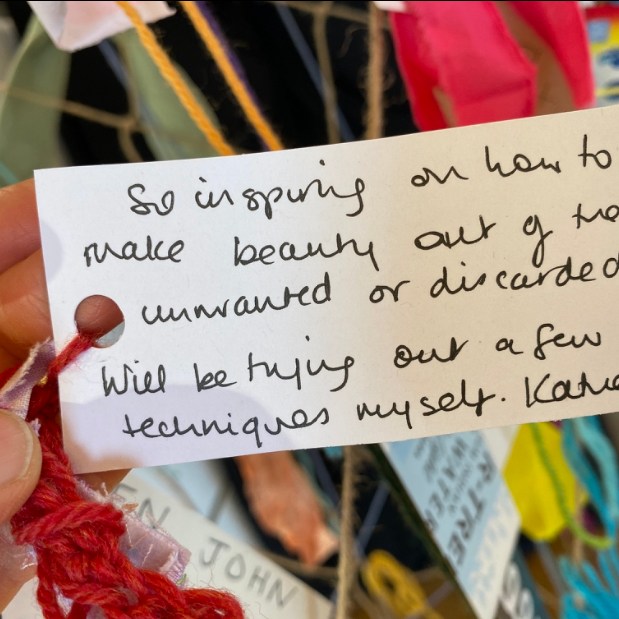 So inspiring on how to
make beauty out of
unwanted or discarded
Will be trying out a few
techniques myself. Katie
EN JOHN
R-TRE
WATER